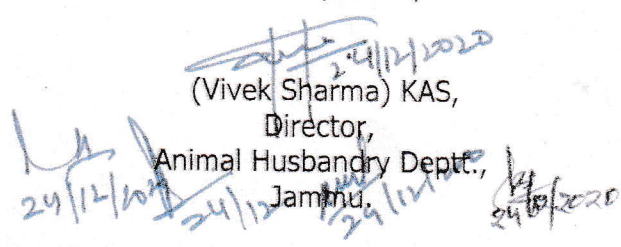 24/12/2020
(Vivek Sharma) KAS,
Director,
Animal Husbandry Deptt.,
Jammu.
24/12/2020
24/12
24/12/2020